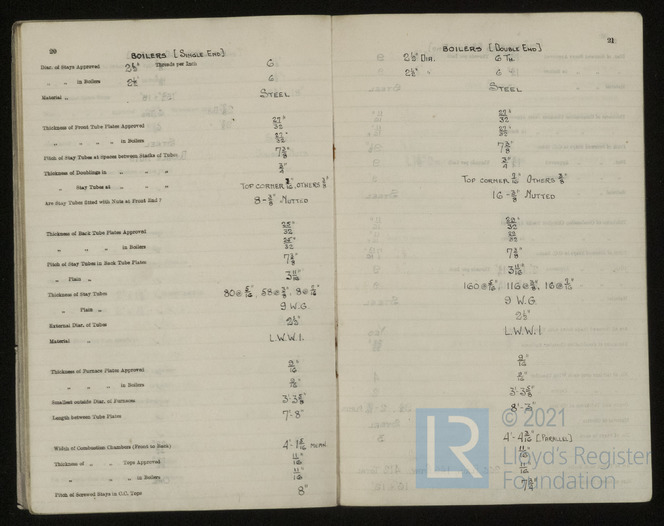 20
BOILERS [SINGLE END]
Diar. of Stays Approved 2½" Threads per Inch 6
„ „ in Boilers 2½" 6
Material „ STEEL
Thickness of Front Tube Plates Approved 27/32"
„ „ „ „ in Boilers 27/32"
Pitch of Stay Tubes at Spaces between Stacks of Tubes 7⅜"
Thickness of Doublings in „ „ „ „ ¾"
„ Stay Tubes at „ „ „ „ TOP CORNER OTHERS ⅜"
Are Stay Tubes fitted with Nuts at Front End? 8 - ⅜" NUTTED
Thickness of Back Tube Plates Approved 25/32"
„ „ „ in Boilers 25/32"
Pitch of Stay Tubes in Back Tube Plates 7⅜"
„ Plain „ 3 11/16"
Thickness of Stay Tubes 80@5/16", 58@⅜", 8@
„ Plain „ 9 W.G.
External Diar. of Tubes 2½"
Material „ L.W.W.I.
Thickness of Furnace Plates Approved 9/16"
„ „ „ in Boilers 9/16"
Smallest outside Diar. of Furnaces 3'·3⅝"
Length between Tube Plates 7'-8"
Width of Combustion Chambers (Front to Back) 4'-1 MEAN
Thickness of „ „ Tops Approved 11/16"
„ „ „ in Boilers 11/16"
Pitch of Screwed Stays in C.C. Tops 8"
21
BOILERS [DOUBLE END]
2½" DIA. 6 TH.
2½" „ 6
STEEL
27/32"
27/32"
7⅜"
¾"
TOP CORNER OTHERS ⅜"
16 - ⅜" NUTTED
7⅜"
3 11/16"
160@5/16", 116@⅜", 16@
9 W.G
2½"
L.W.W.I.
9/16"
9/16"
3'·3⅝"
8'-3"
4'-4 [PARALLEL]
11/16"
11/16"
LR
© 2021
Lloyd's Register
Foundation